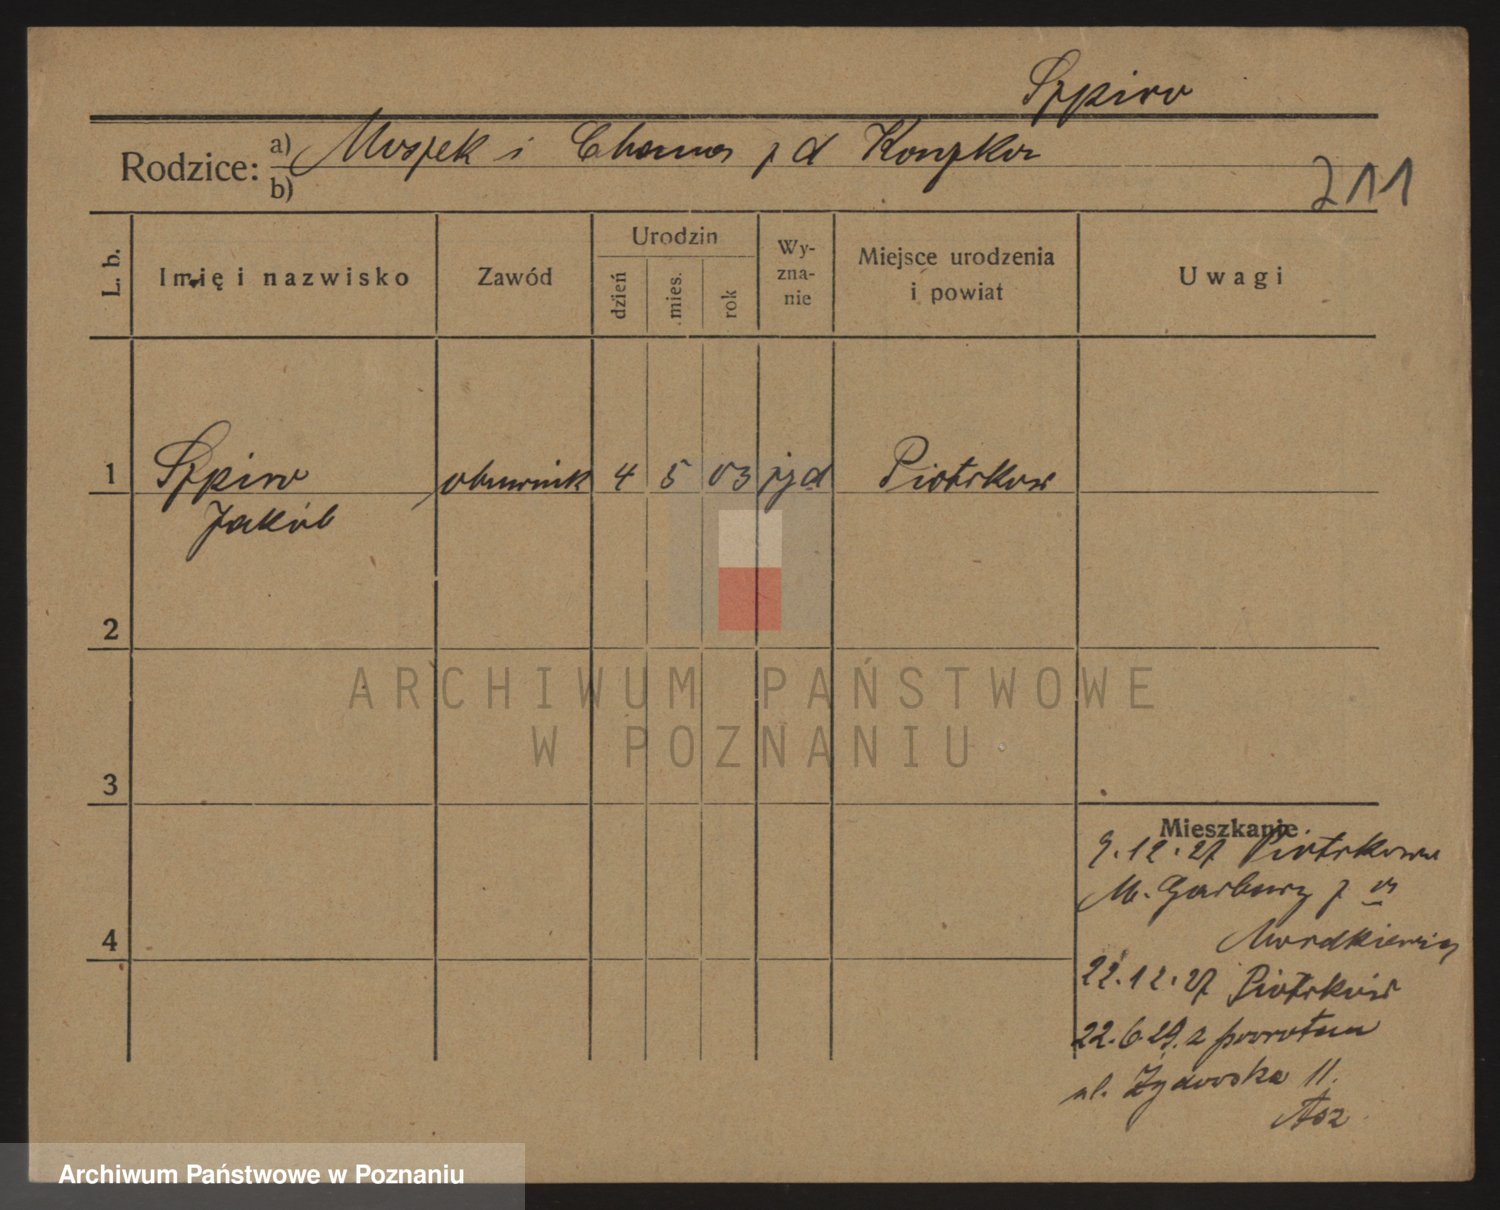 Szpiro
Rodzice: a) Moszek i Chana z d
b)
211
L. b.
Imię i nazwisko
Zawód
Urodzin
dzień
mies.
rok
Wy-
zna-
nie
Miejsce urodzenia
i powiat
Uwagi
1 Szpiro 4 5 03 Piotrków
Jakób
2
3
4
Mieszkanie
9.12.27 Piotrkowa
M. Garbary 7
Mordkiewicz
22.12.27 Piotrków
22.6.29. z powrotem
ul. Żydowska 11.
ARCHIWUM PAŃSTWOWE
W POZNANIU
Archiwum Państwowe w Poznaniu